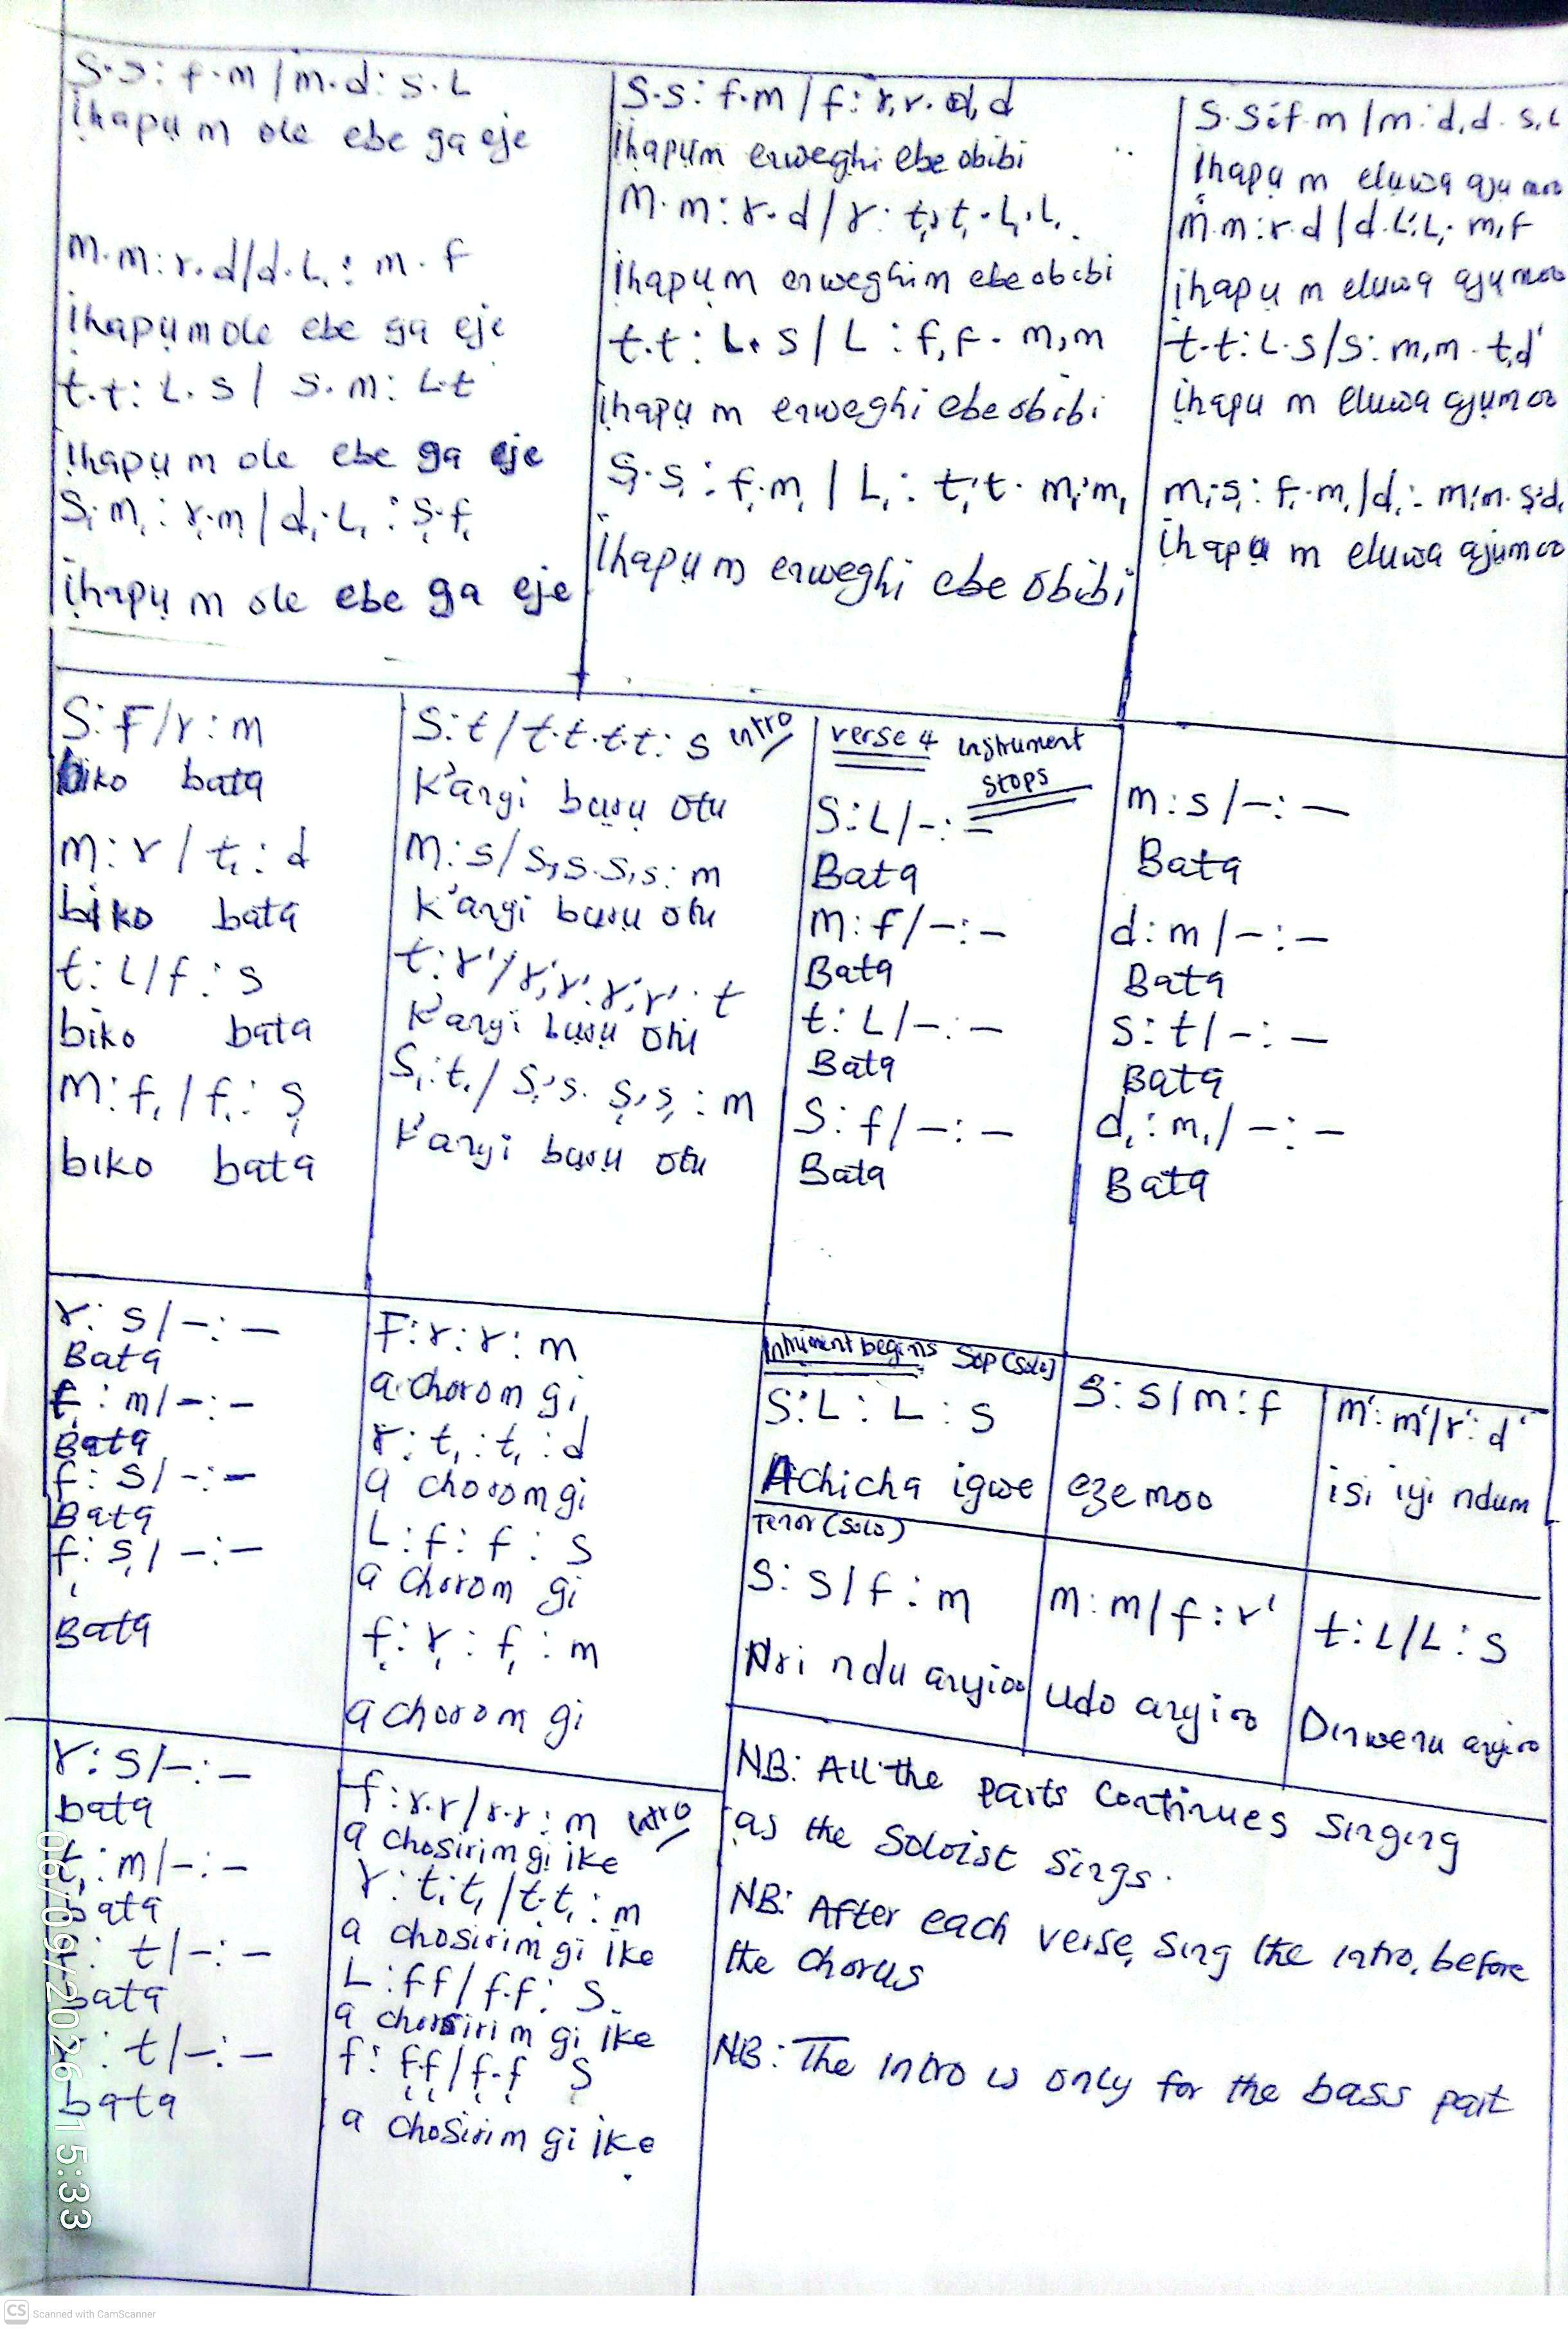 S.s: f.m / m.d: s.L
Ịhapụ m ole ebe ga eje
m.m: r.d/d.L₁: m.f
Ịhapụ m ole ebe ga eje
t.t: L.s / s.m: L.t
Ịhapụ m ole ebe ga eje
S₁.m₁: r₁.m₁/d₁.L₁: s₁.f₁
Ịhapụ m ole ebe ga eje
S.s: f.m / f: r,r. d,d
Ịhapụm enweghi ebe obibi
M.m: r.d / r: t₁,t₁.L₁,L₁
Ịhapụm enweghim ebe obibi
t.t: L.s / L: f,f. m,m
Ịhapụ m enweghi ebe obibi
S₁.s₁: f₁.m₁ / L₁: t₁,t. m₁,m₁
Ịhapụ m enweghi ebe obibi
S.S:f.m / m:d,d. s,L
Ịhapụ m eluwa ajụ moo
m.m:r.d / d.L₁:L₁. m,f
Ịhapụ m eluwa ajụ moo
t.t: L.s/s: m,m. t,d'
Ịhapụ m eluwa ajụmoo
m₁.s₁: f₁.m₁/d₁: m,m. s,d₁
Ịhapụ m eluwa ajụmoo
S: F/r: m
biko bata
m: r / t₁: d
biko bata
t: L/f: s
biko bata
m: f₁ / f₁: s₁
biko bata
S: t / t.t.t.t: s intro
K'anyi bụrụ otu
M: s/ s,s.s,s: m
K'anyi bụrụ otu
t: r'/ r',r'.r',r': t
K'anyi bụrụ otu
S₁: t₁/ s₁,s. s₁,s₁: m
K'anyi bụrụ otu
verse 4 instrument
stops
S: L/-: -
Bata
m: f/-: -
Bata
t: L/-: -
Bata
S: f/-: -
Bata
m: s/-: -
Bata
d: m/-: -
Bata
s: t/-: -
Bata
d₁: m₁/-: -
Bata
r: s/-: -
Bata
t₁: m/-: -
Bata
f: s/-: -
Bata
f₁: s₁/-: -
Bata
F: r: r: m
a chorom gi
r: t₁: t₁: d
a chorom gi
L: f: f: s
a chorom gi
f₁: r₁: f₁: m
a chorom gi
Intrument begins Sop (Solo)
S: L: L: s
Achicha igwe
S: s/m: f
eze moo
m': m'/r': d'
isi iyi ndum
Tenor (Solo)
S: s/f: m
Nri ndu anyioo
m: m/f: r'
Udo anyi oo
t: L/L: s
Dinwenu anyioo
r: s/-: -
bata
t₁: m/-: -
bata
: t/-: -
bata
: t/-: -
bata
f: r.r / r.r: m intro
a chosirim gi ike
r: t₁.t₁ / t.t₁: m
a chosirim gi ike
L: f f / f.f: s
a chorsirim gi ike
f: f₁f₁/f₁.f₁ s
a chosirim gi ike
NB: All the parts continues singing
as the soloist sings.
NB: After each verse, sing the intro, before
the chorus
NB: The intro is only for the bass part
06/09/2026 15:33
CS Scanned with CamScanner